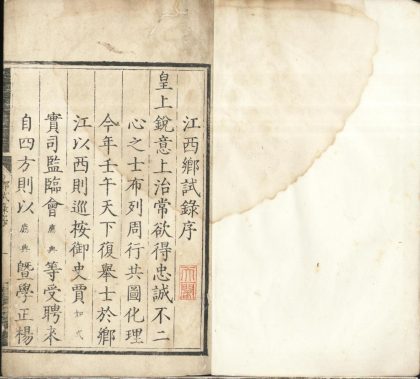 江西鄉試錄序
皇上銳意上治常欲得忠誠不二
心之士布列周行共圖化理
今年壬午天下復舉士於鄉
江以西則巡按御史賈如式
實司監臨會典等受聘來
自四方則以典暨學正楊